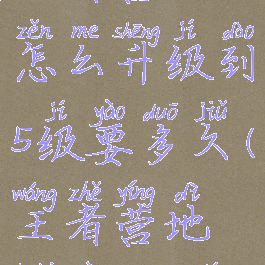 zěn me shēng jí dào
怎么升级到
jí yào duō jiǔ
5级要多久(
wáng zhě yíng dì
王者营地